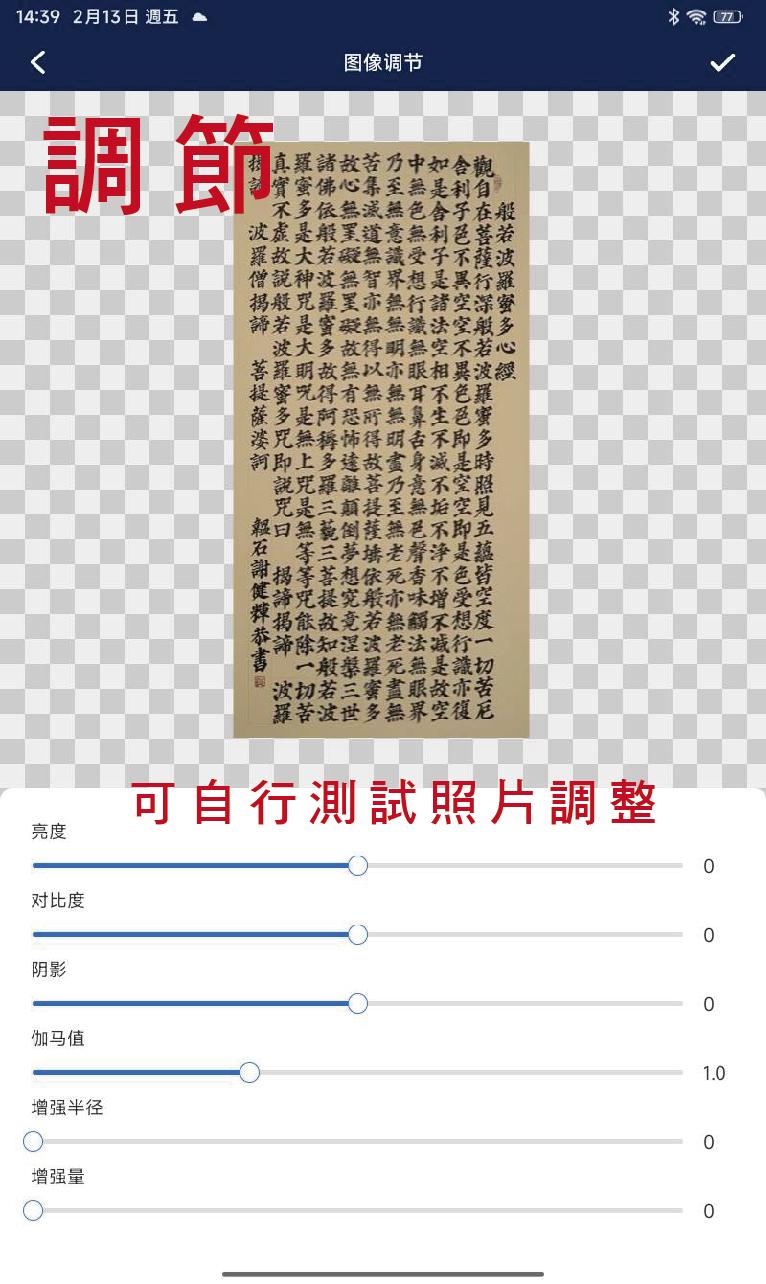 14:39 2月13日 週五
77
图像调节
調節
般若波羅蜜多心經
觀自在菩薩行深般若波羅蜜多時照見五蘊皆空度一切苦厄
舍利子色不異空空不異色色即是空空即是色受想行識亦復
如是舍利子是諸法空相不生不滅不垢不淨不增不減是故空
中無色無受想行識無眼耳鼻舌身意無色聲香味觸法無眼界
乃至無意識界無無明亦無無明盡乃至無老死亦無老死盡無
苦集滅道無智亦無得以無所得故菩提薩埵依般若波羅蜜多
故心無罣礙無罣礙故無有恐怖遠離顛倒夢想究竟涅槃三世
諸佛依般若波羅蜜多故得阿耨多羅三藐三菩提故知般若波
羅蜜多是大神咒是大明咒是無上咒是無等等咒能除一切苦
真實不虛故説般若波羅蜜多咒即説咒曰 揭諦揭諦 波羅
揭諦 波羅僧揭諦 菩提薩婆訶 石謝健輝恭書
可自行測試照片調整
亮度
0
对比度
0
阴影
0
伽马值
1.0
增强半径
0
增强量
0